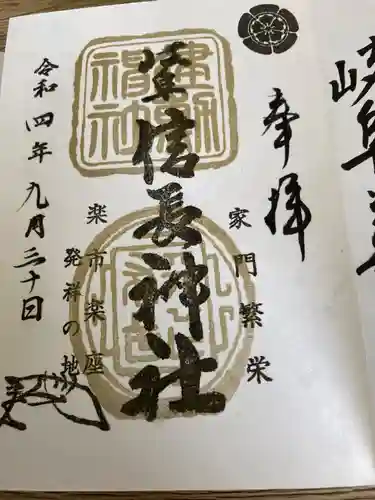 岐阜
奉拝
家門繁栄
信長神社
建勲
神社
楽市楽座
発祥の地
令和四年九月三十日